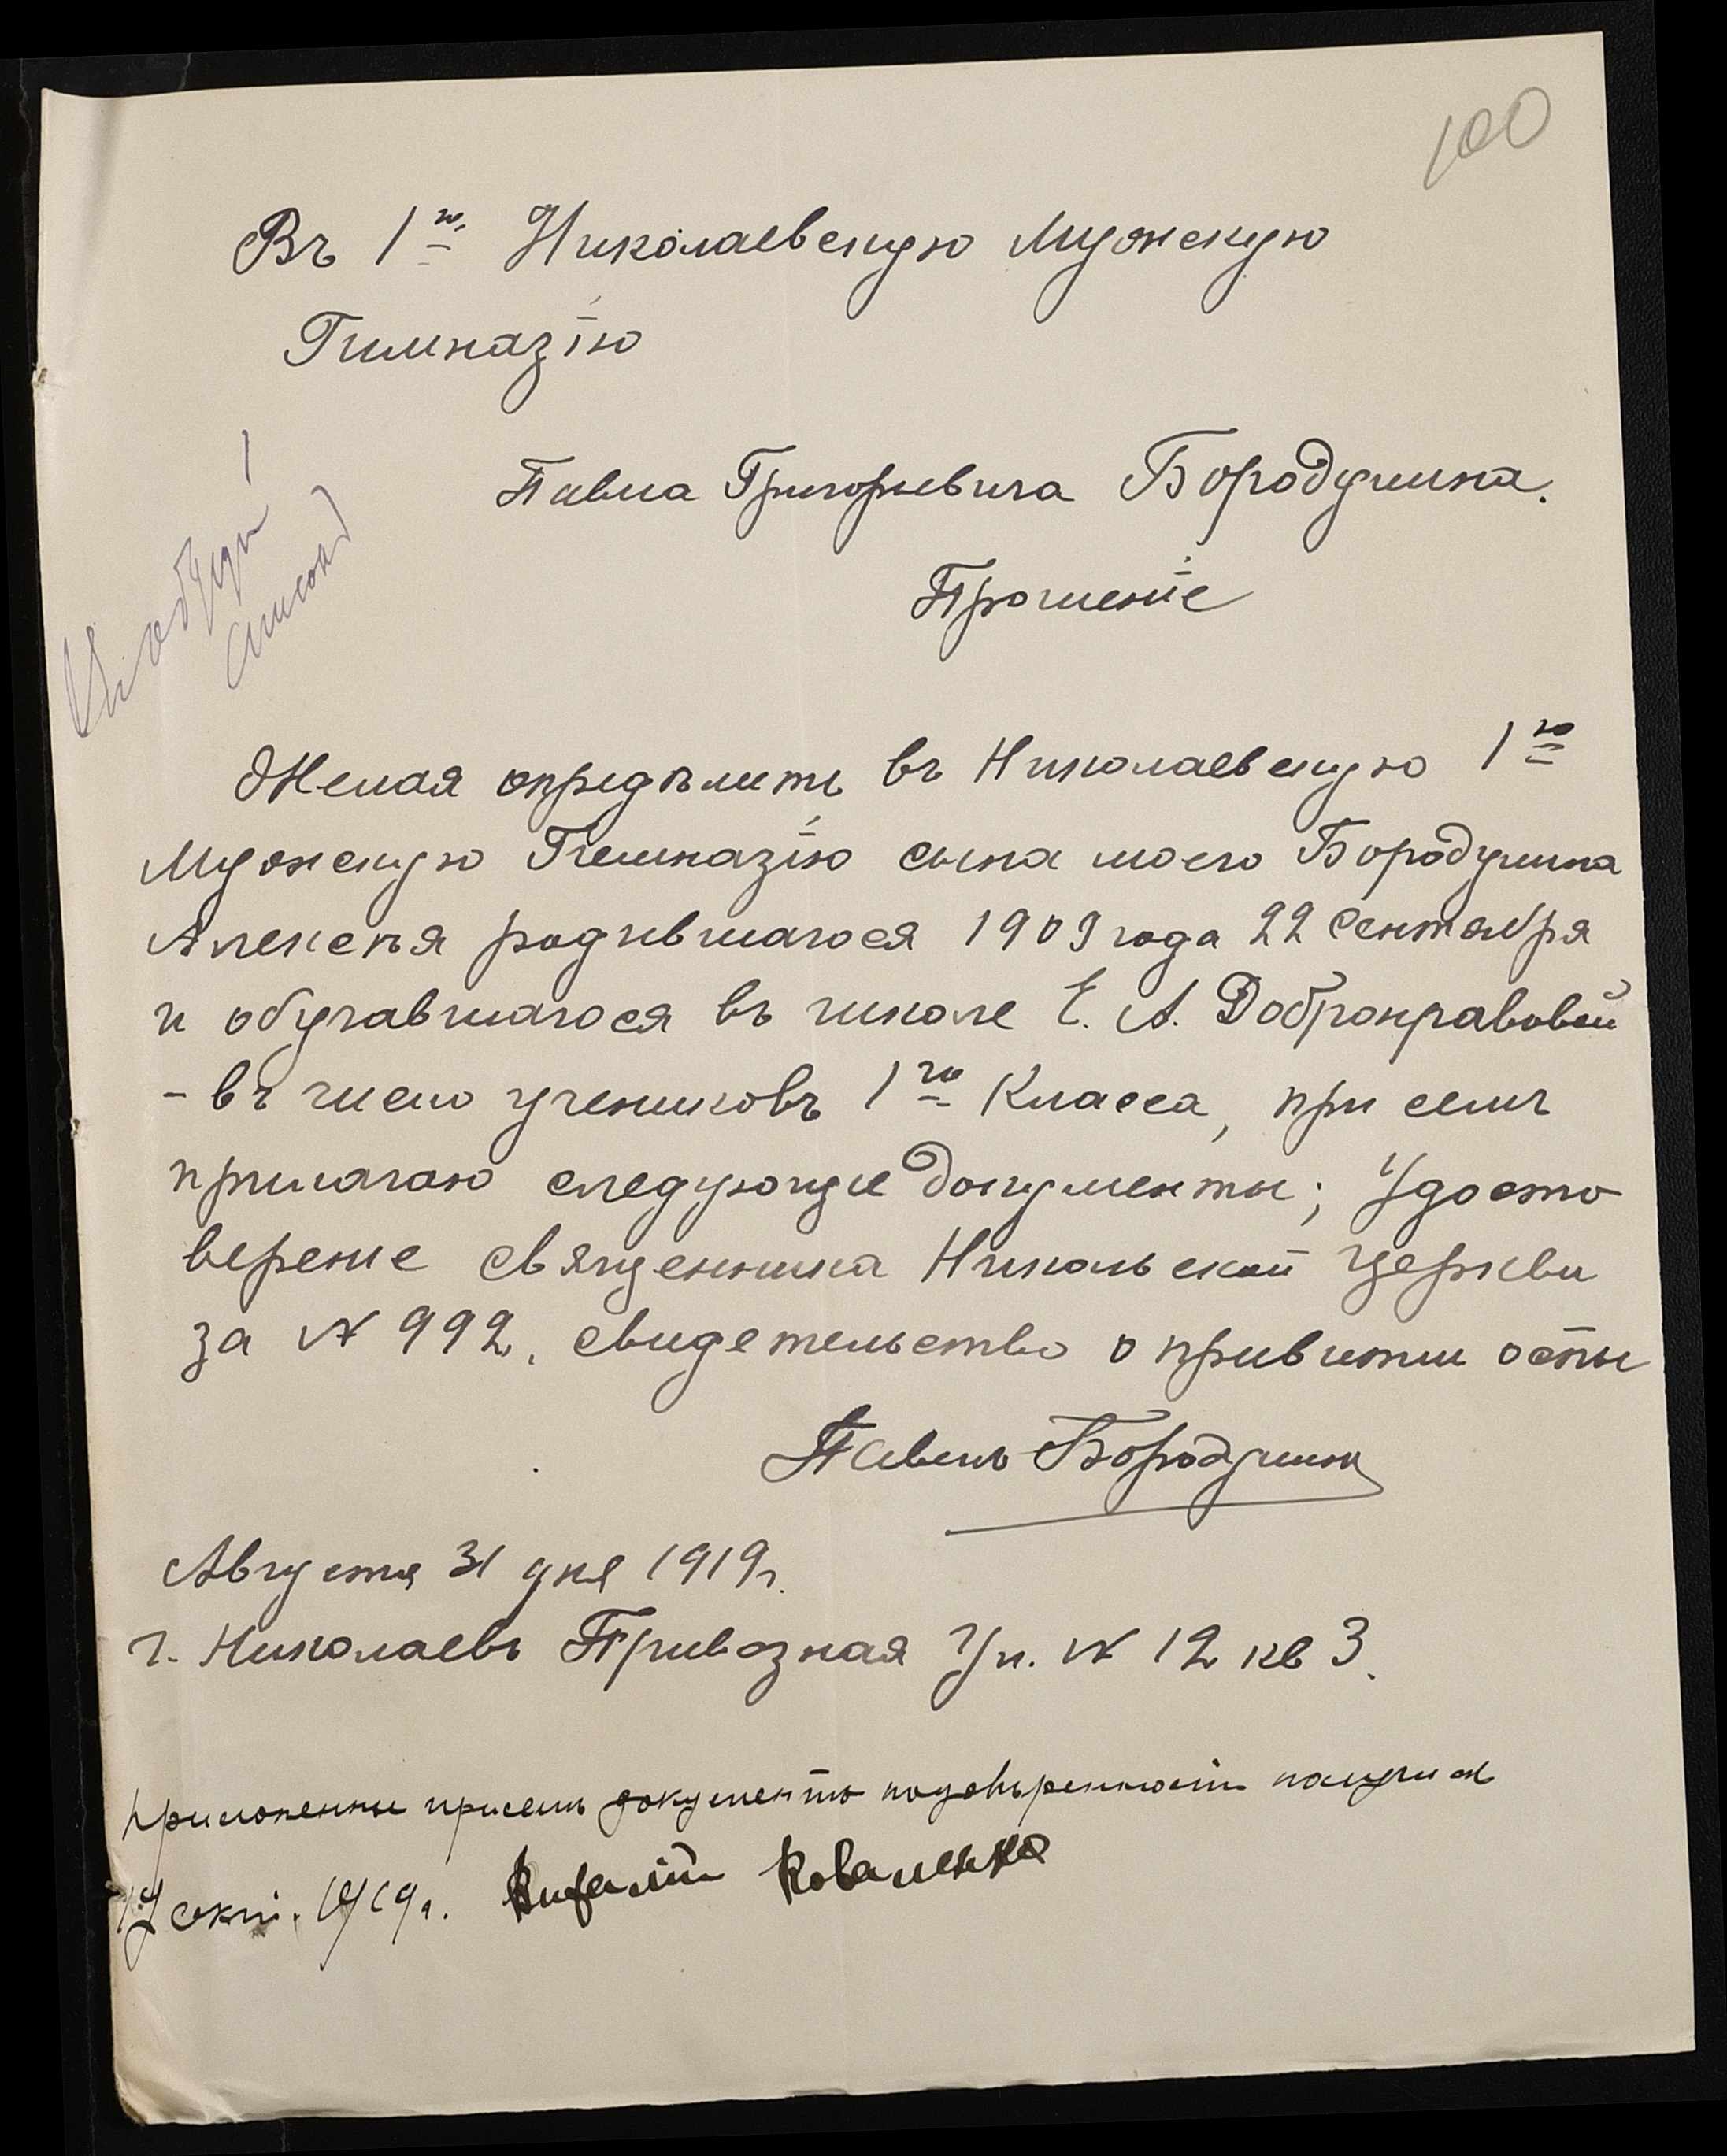 100
Въ 1ю Николаевскую Мужскую
Гимназію
Павла Григорьевича Бородулина.
Прошеніе
Желая опредѣлить въ Николаевскую 1ю
Мужскую Гимназію сына моего Бородулина
Алексѣя родившагося 1909 года 22 Сентября
и обучавшагося въ школе Е. А. Добронравовой
- въ число учениковъ 1го Класса, при семъ
прилагаю следующие документы; Удосто
верение священника Никольской Церкви
за № 992, свидетельство о привитии оспы
Павелъ Бородулин
Августа 31 дня 1919г.
г. Николаевъ Привозная Ул. № 12 кв 3.
приложенные присемъ документъ подовѣренности получил
окт. 1919г. Виталій Коваленко